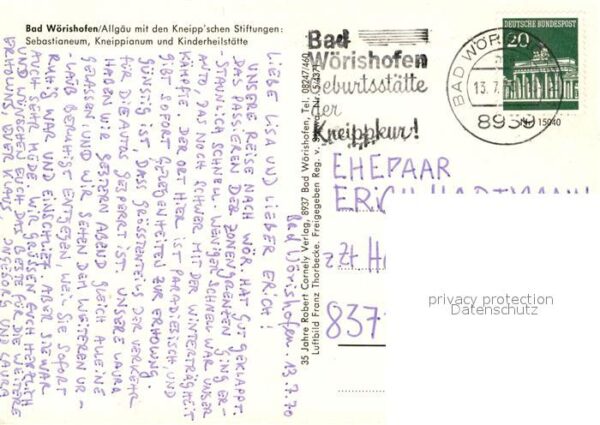 Bad Wörishofen/Allgäu mit den Kneipp'schen Stiftungen:
Sebastianeum, Kneippianum und Kinderheilstätte
Bad Wörishofen, 13.7.70
LIEBE LISA UND LIEBER ERICH!
UNSERE REISE NACH WÖR. HAT GUT GEKLAPPT.
DAS PASSIEREN DER ZONENGRENZEN GING ER-
STAUNLICH SCHNELL. WENIGER SCHNELL WAR UNSER
AUTO DAS NOCH SCHWER MIT DER WINTERTRÄGHEIT
KÄMPFTE. DER ORT HIER IST PARADIESISCH, UND
GIBT SOFORT GELEGENHEITEN ZUR ERHOLUNG.
GÜNSTIG IST, DASS GRÖSSTENTEILS DER VERKEHR
FÜR DIE AUTOS GESPERRT IST. UNSERE LAURA
HABEN WIR GESTERN ABEND GLEICH ALLEINE
GELASSEN UND WIR SEHEN DEM WEITEREN UR-
LAUB BERUHIGT ENTGEGEN WEIL SIE SOFORT
RUHIG WAR UND EINSCHLIEF. ABER SIE WAR
AUCH SEHR MÜDE. WIR GRÜSSEN EUCH HERZLICH
UND WÜNSCHEN EUCH DAS BESTE FÜR DIE WEITERE
ERHOLUNG, EUER KLAUS, INGEBORG UND LAURA
35 Jahre Robert Cornely Verlag, 8937 Bad Wörishofen, Tel. 08247/460
Luftbild Franz Thorbecke. Freigegeben Reg. v.
Bad
Wörishofen
Geburtsstätte
der
Kneippkur!
BAD WÖR
13.7.
8939
DEUTSCHE BUNDESPOST
20
15040
EHEPAAR
ERICH HARTMANN
zzt
837
privacy protection
Datenschutz